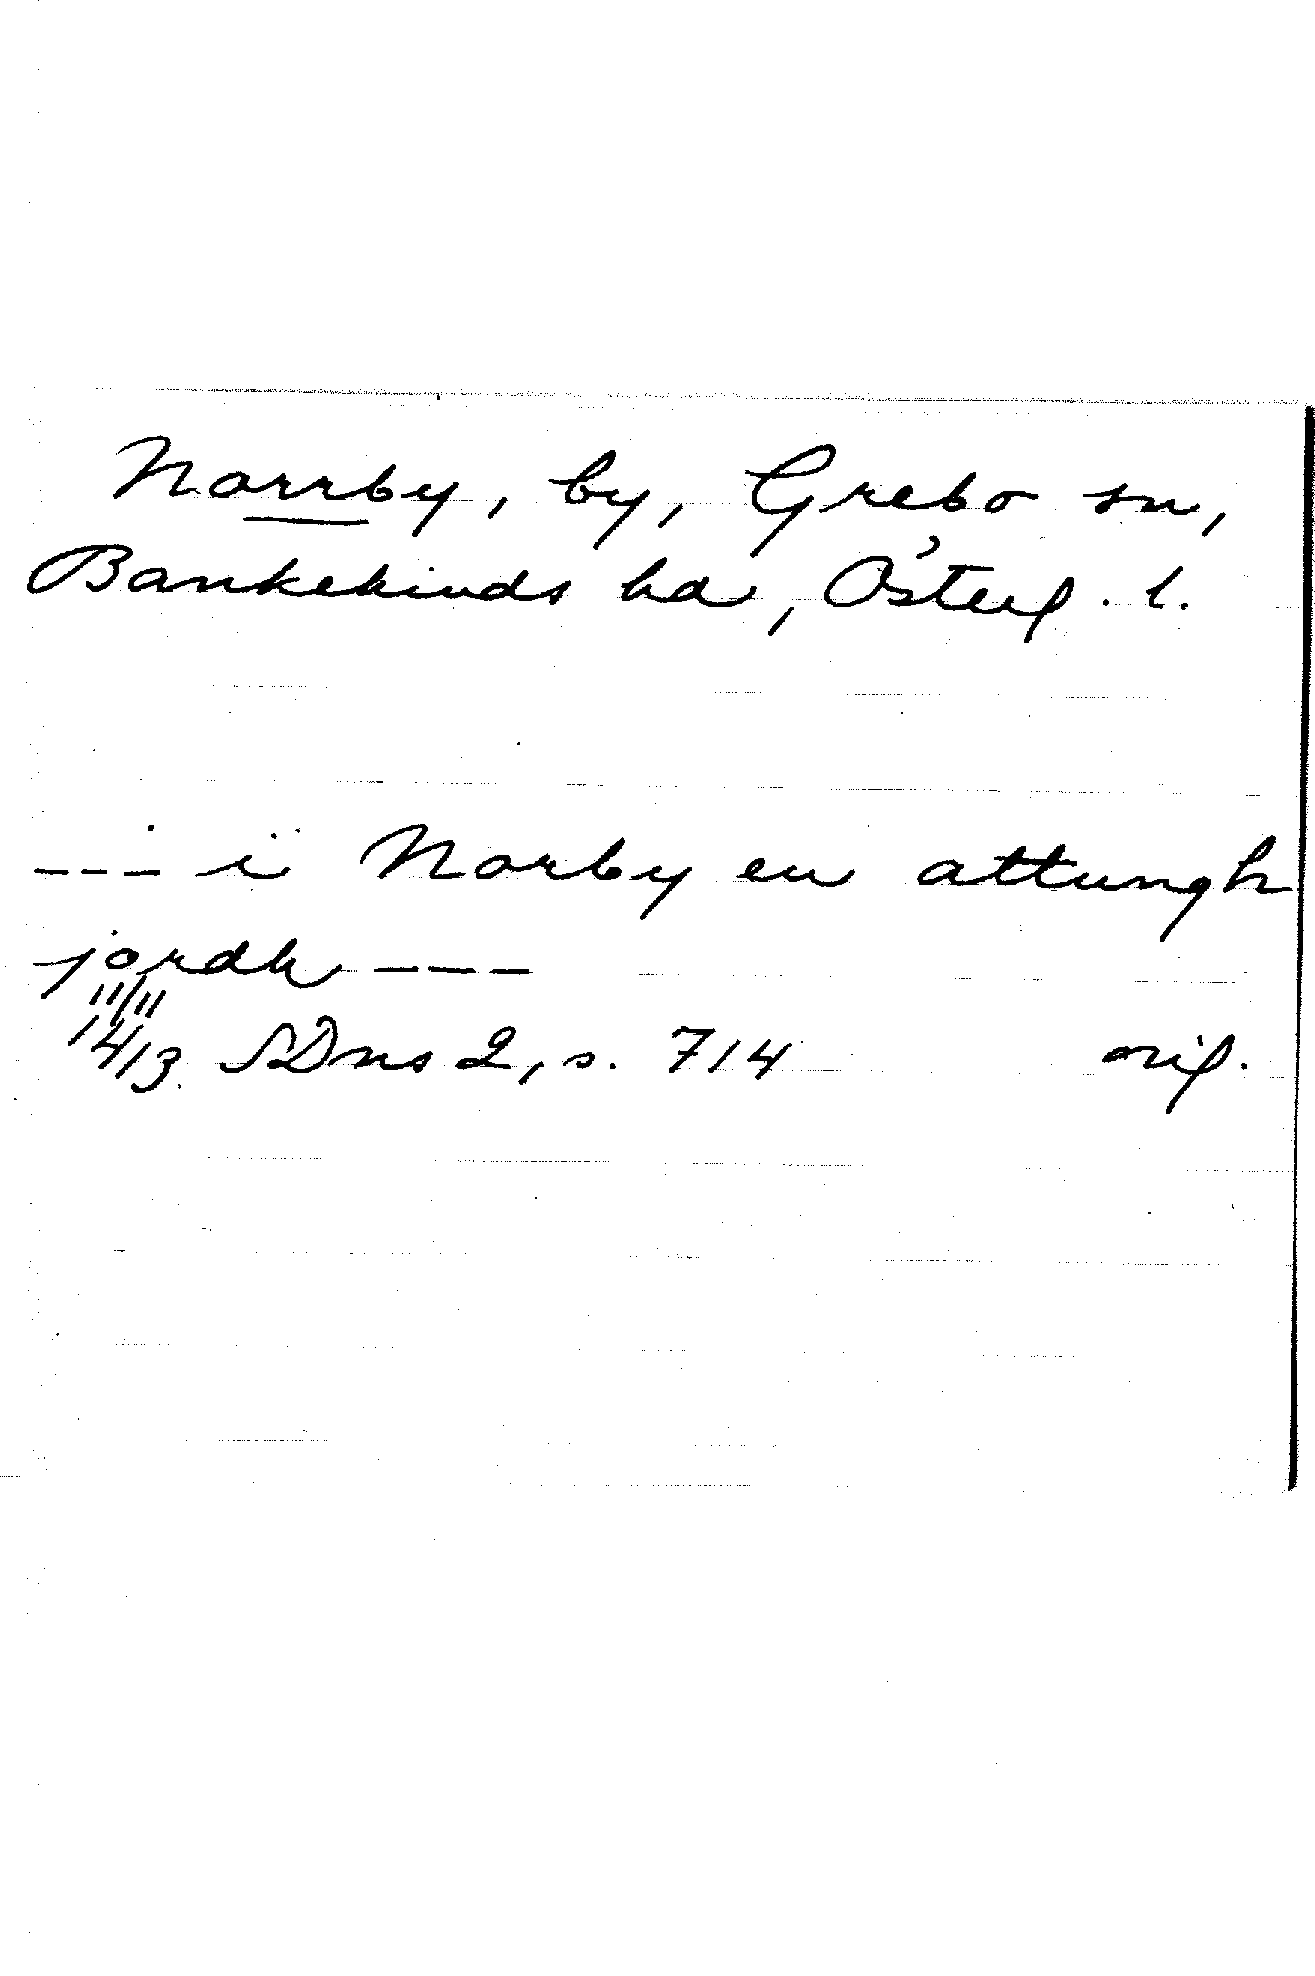 Norrby, by, Grebo sn,
Bankekinds hd, Österg. l.
--- i Norby en attungh
jordh ---
11/11
1413 SDns 2, s. 714 orig.